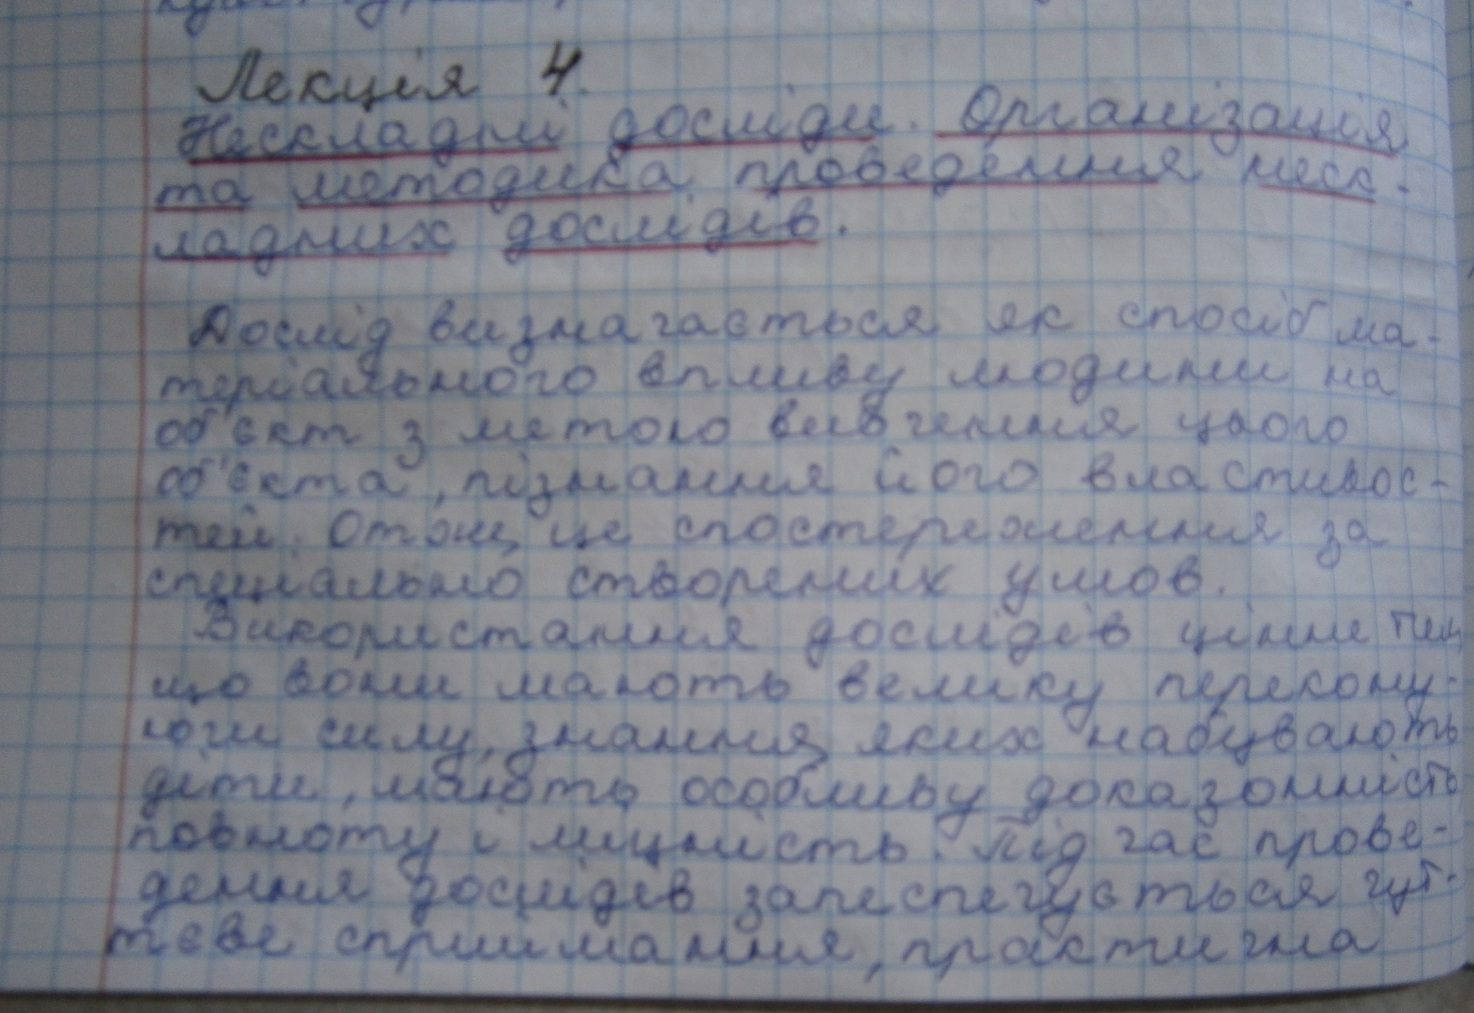 Лекція 4.
Нескладні досліди. Організація
та методика проведення неск-
ладних дослідів.
Дослід визначається як спосіб ма-
теріального впливу людини на
об'єкт з метою вивчення цього
об'єкта, пізнання його властивос-
тей. Отже, це спостереження за
спеціально створених умов.
Використання дослідів цінне тим,
що вони мають велику перекону-
ючи силу, знання, яких набувають
діти, мають особливу доказовність
повноту і міцність. Під час прове-
дення дослідів забеспечується чут-
тєве сприймання, практична